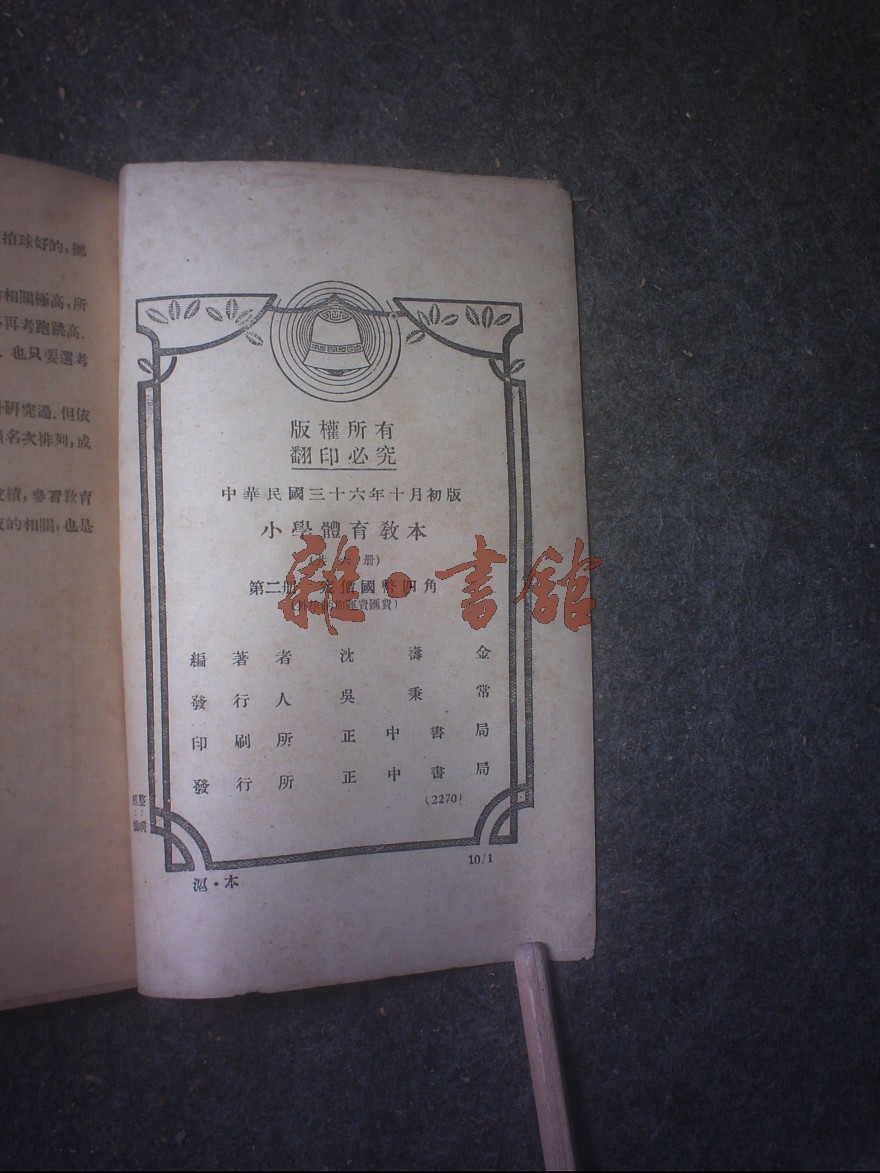 拍球好的,擲
相關極高,所
再考跑跳高.
也只要選考
研究過.但依
名次排列,或
成績,參看教育
的相關,也是
版權所有
翻印必究
中華民國三十六年十月初版
小學體育教本
冊)
第二册 定價國幣四角
運費匯費)
雜·書館
編著者 沈壽金
發行人 吳秉常
印刷所 正中書局
發行所 正中書局
(2270)
滬·本
10/1